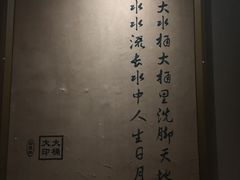 大水桶大桶里洗脚天地
水水流长水中人生日月
大桶
大印